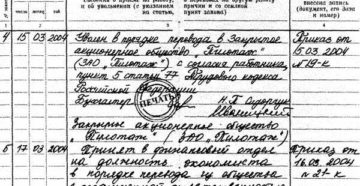 и об увольнении (с указанием
причин и со ссылкой
на статью, пункт закона)
внесена запись
(документ, его дата
и номер)
4 15 03 2004 Уволен в порядке перевода в Закрытое Приказ от
акционерное общество "Пилотаж" 15.03.2004
(ЗАО "Пилотаж") с согласия работника, N 19-к
пункт 5 статьи 77 Трудового кодекса
Российской Федерации
Бухгалтер Н.П.
ПЕЧАТЬ
Закрытое акционерное общество
"Пилотаж" ЗАО "Пилотаж"
5 17 03 2004 Принят в финансовый отдел Приказ от
на должность экономиста 16.03.2004
в порядке перевода из общества N 21-к